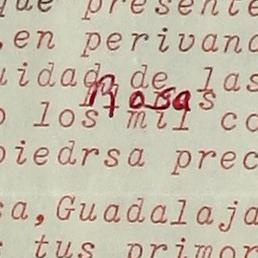 que presente
en perivano
uidad de las
Rosas
o los mil co
piedrsa prec
sa, Guadalaja
s tus primor